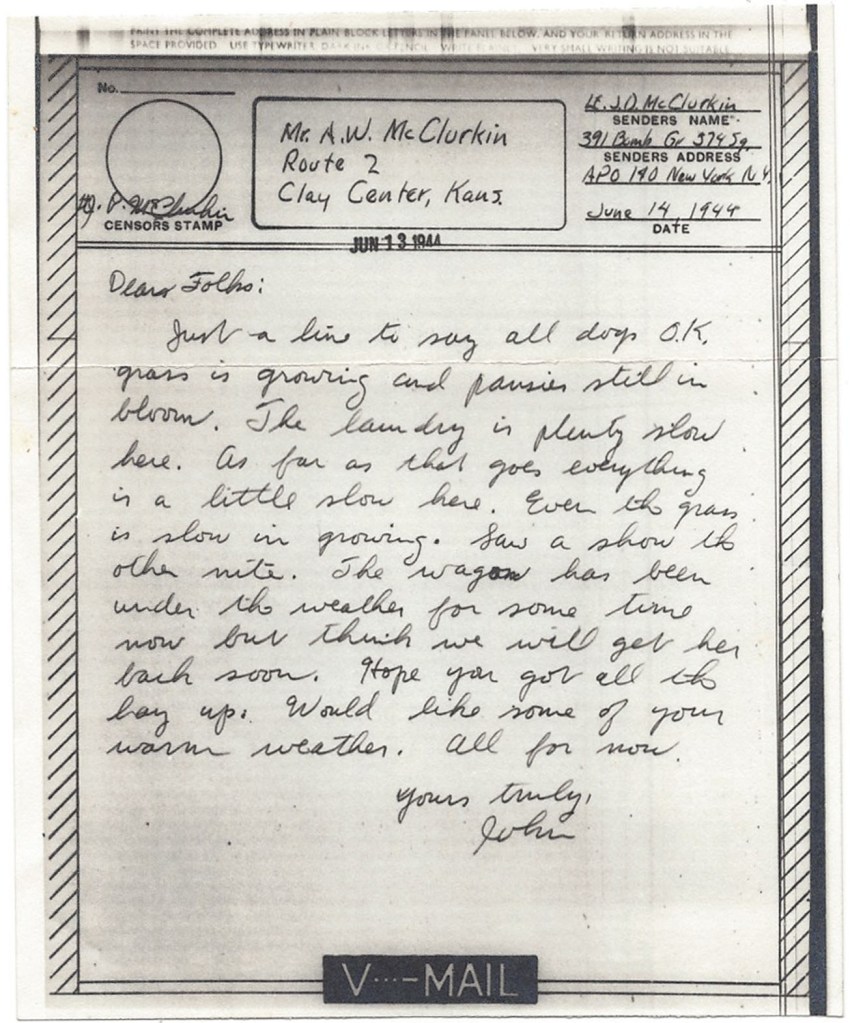 PRINT THE COMPLETE ADDRESS IN PLAIN BLOCK LETTERS IN THE PANEL BELOW, AND YOUR RETURN ADDRESS IN THE
SPACE PROVIDED. USE TYPEWRITER, DARK INK, OR PENCIL. WRITE PLAINLY. VERY SMALL WRITING IS NOT SUITABLE.
No.
Mr. A.W. McClurkin
Route 2
Clay Center, Kans.
Lt. J.D. McClurkin
SENDERS NAME
391 Bomb Gr 574 Sq.
SENDERS ADDRESS
APO 140 New York N.Y.
June 14, 1944
DATE
McClurkin
CENSORS STAMP
JUN 13 1944
Dear Folks:
Just a line to say all dogs O.K.
grass is growing and pansies still in
bloom. The laundry is plenty slow
here. As far as that goes everything
is a little slow here. Even the grass
is slow in growing. Saw a show the
other nite. The wagon has been
under the weather for some time
now but think we will get her
back soon. Hope you got all the
hay up. Would like some of your
warm weather. All for now.
Yours truly,
John
V···—MAIL